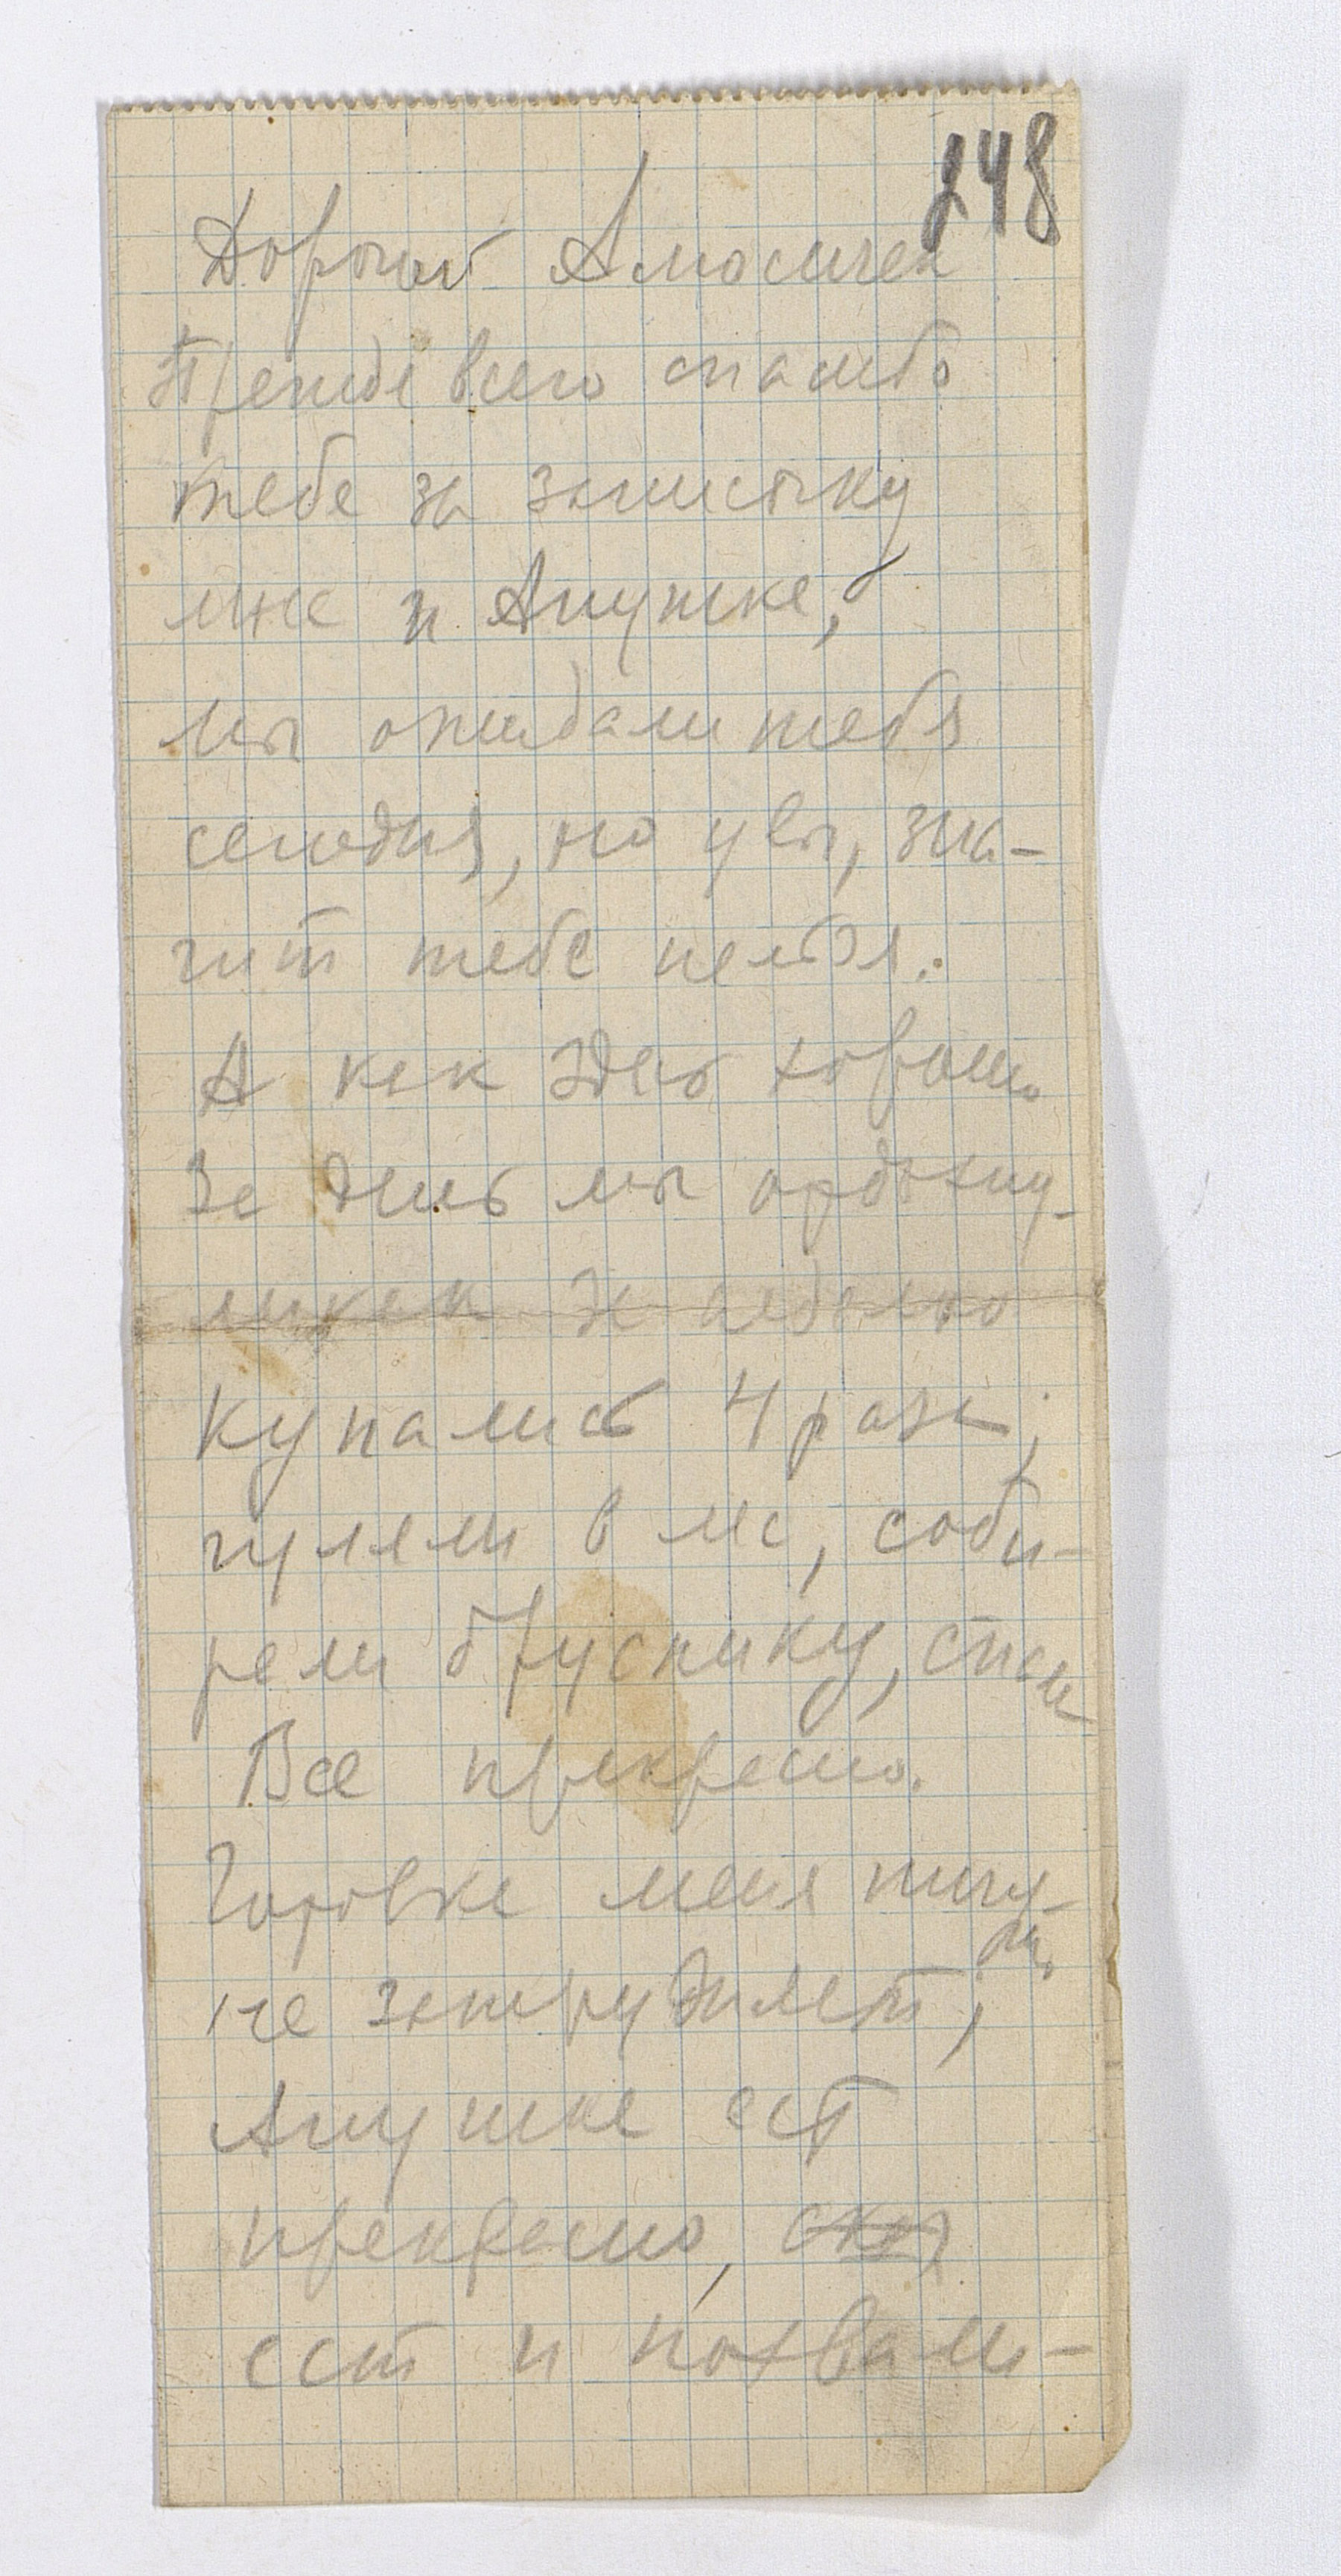 248
Дорогой Амосичек
Прежде всего спасибо
тебе за записочку
мне и Анушке,
мы ожидали тебя
сегодня, но увы, зна-
чит тебе нельзя.
А как здесь хорошо
За день мы отдохну-
ли как за неделю
купались 4 раза,
гуляли в лес, соби-
рали бруснику, спали
Все прекрасно.
Готовка меня ничу-
ть
не затрудняет,
Анушка ест
прекрасно,
ест и похвали-